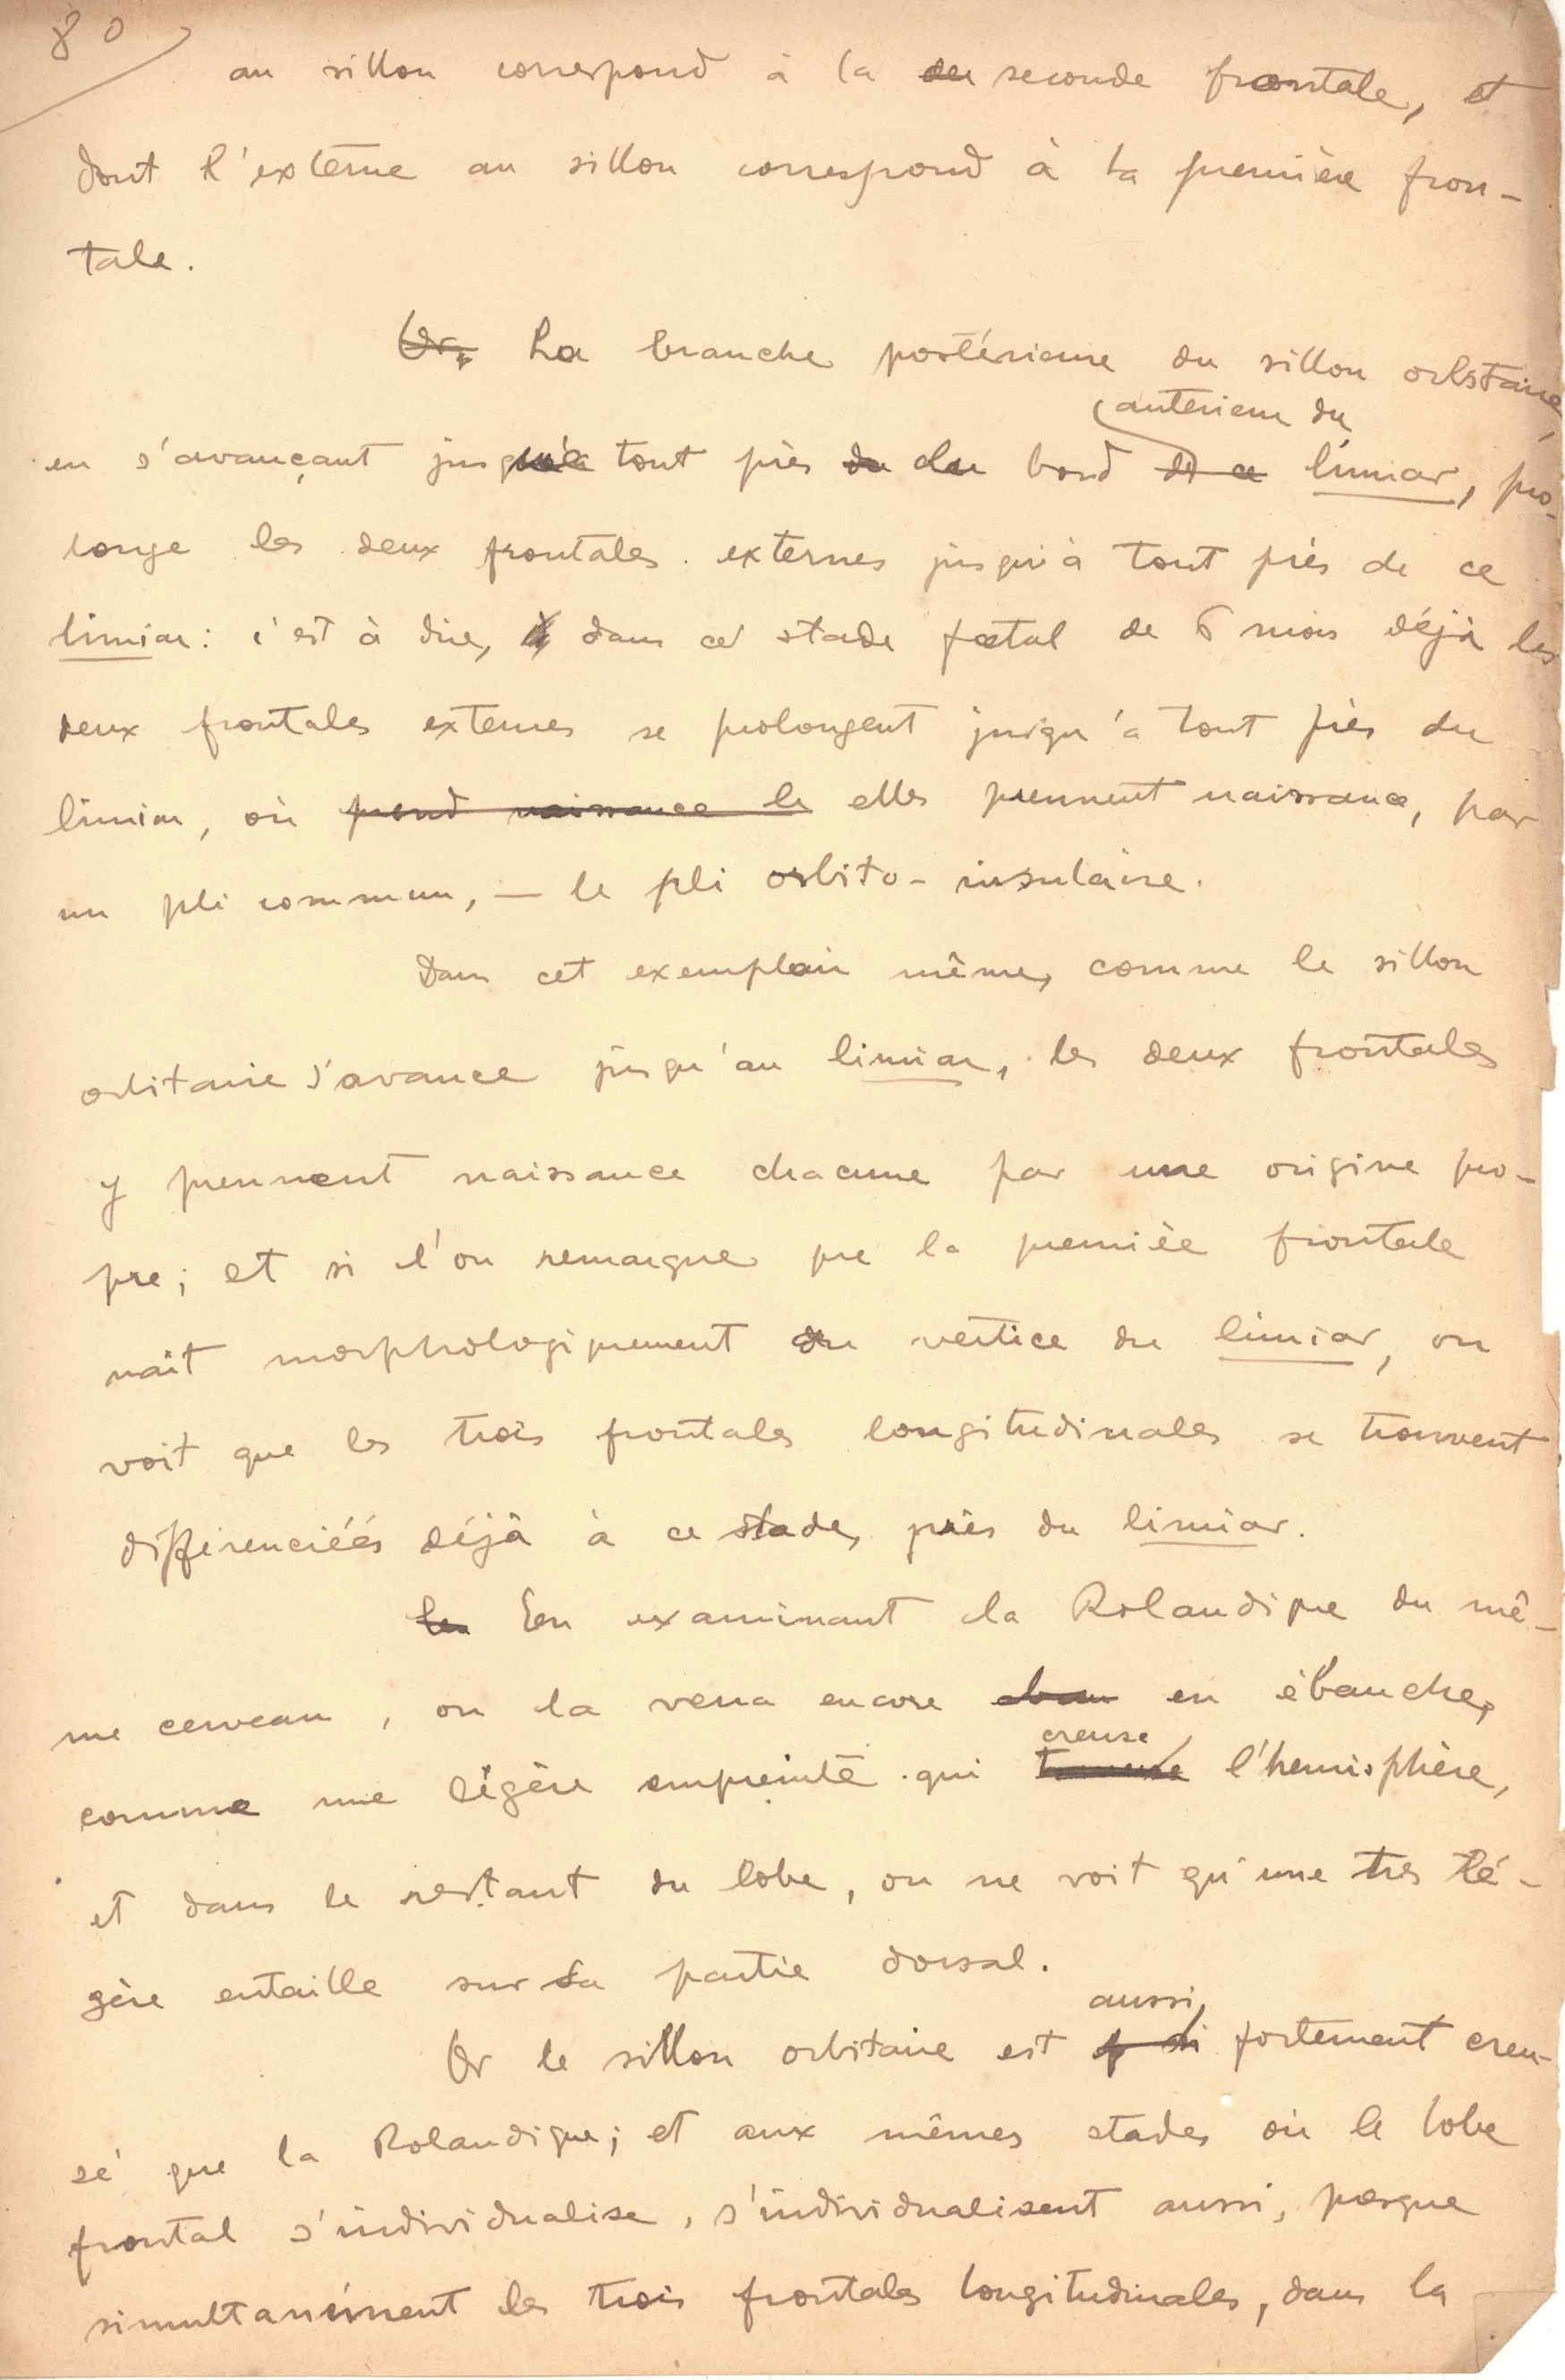 80
au sillon correspond à la seconde frontale, et
dont l'externe au sillon correspond à la première fron-
tale.
Or, La branche postérieure du sillon orbitaire,
antérieur du
en s'avançant jusqu'à tout près du du bord de ce limiar, pro-
longe les deux frontales externes jusqu'à tout près de ce
limiar: c'est à dire, dans ce stade fœtal de 6 mois déjà les
deux frontales externes se prolongent jusqu'à tout près du
limiar, où prend naissance le elles prennent naissance, par
un pli commun, — le pli orbito-insulaire.
Dans cet exemplair même, comme le sillon
orbitaire s'avance jusqu'au limiar, les deux frontales
y prennent naissance chacune par une origine pro-
pre; et si l'on remarque que la première frontale
naît morphologiquement du vertice du limiar, on
voit que les trois frontales longitudinales se trouvent
différenciéés déjà à ce stade, près du limiar.
En examinant la Rolandique du mê-
me cerveau, on la verra encore en ébauche,
creuse
comme une légère empreinte qui l'hemisphère,
et dans le restant du lobe, on ne voit qu'une tres lé-
gère entaille sur sa partie dorsal.
aussi
Or le sillon orbitaire est fortement creu-
sé que la Rolandique; et aux mêmes stades où le lobe
frontal s'individualise, s'individualisent aussi, presque
simultanément les trois frontales longitudinales, dans la